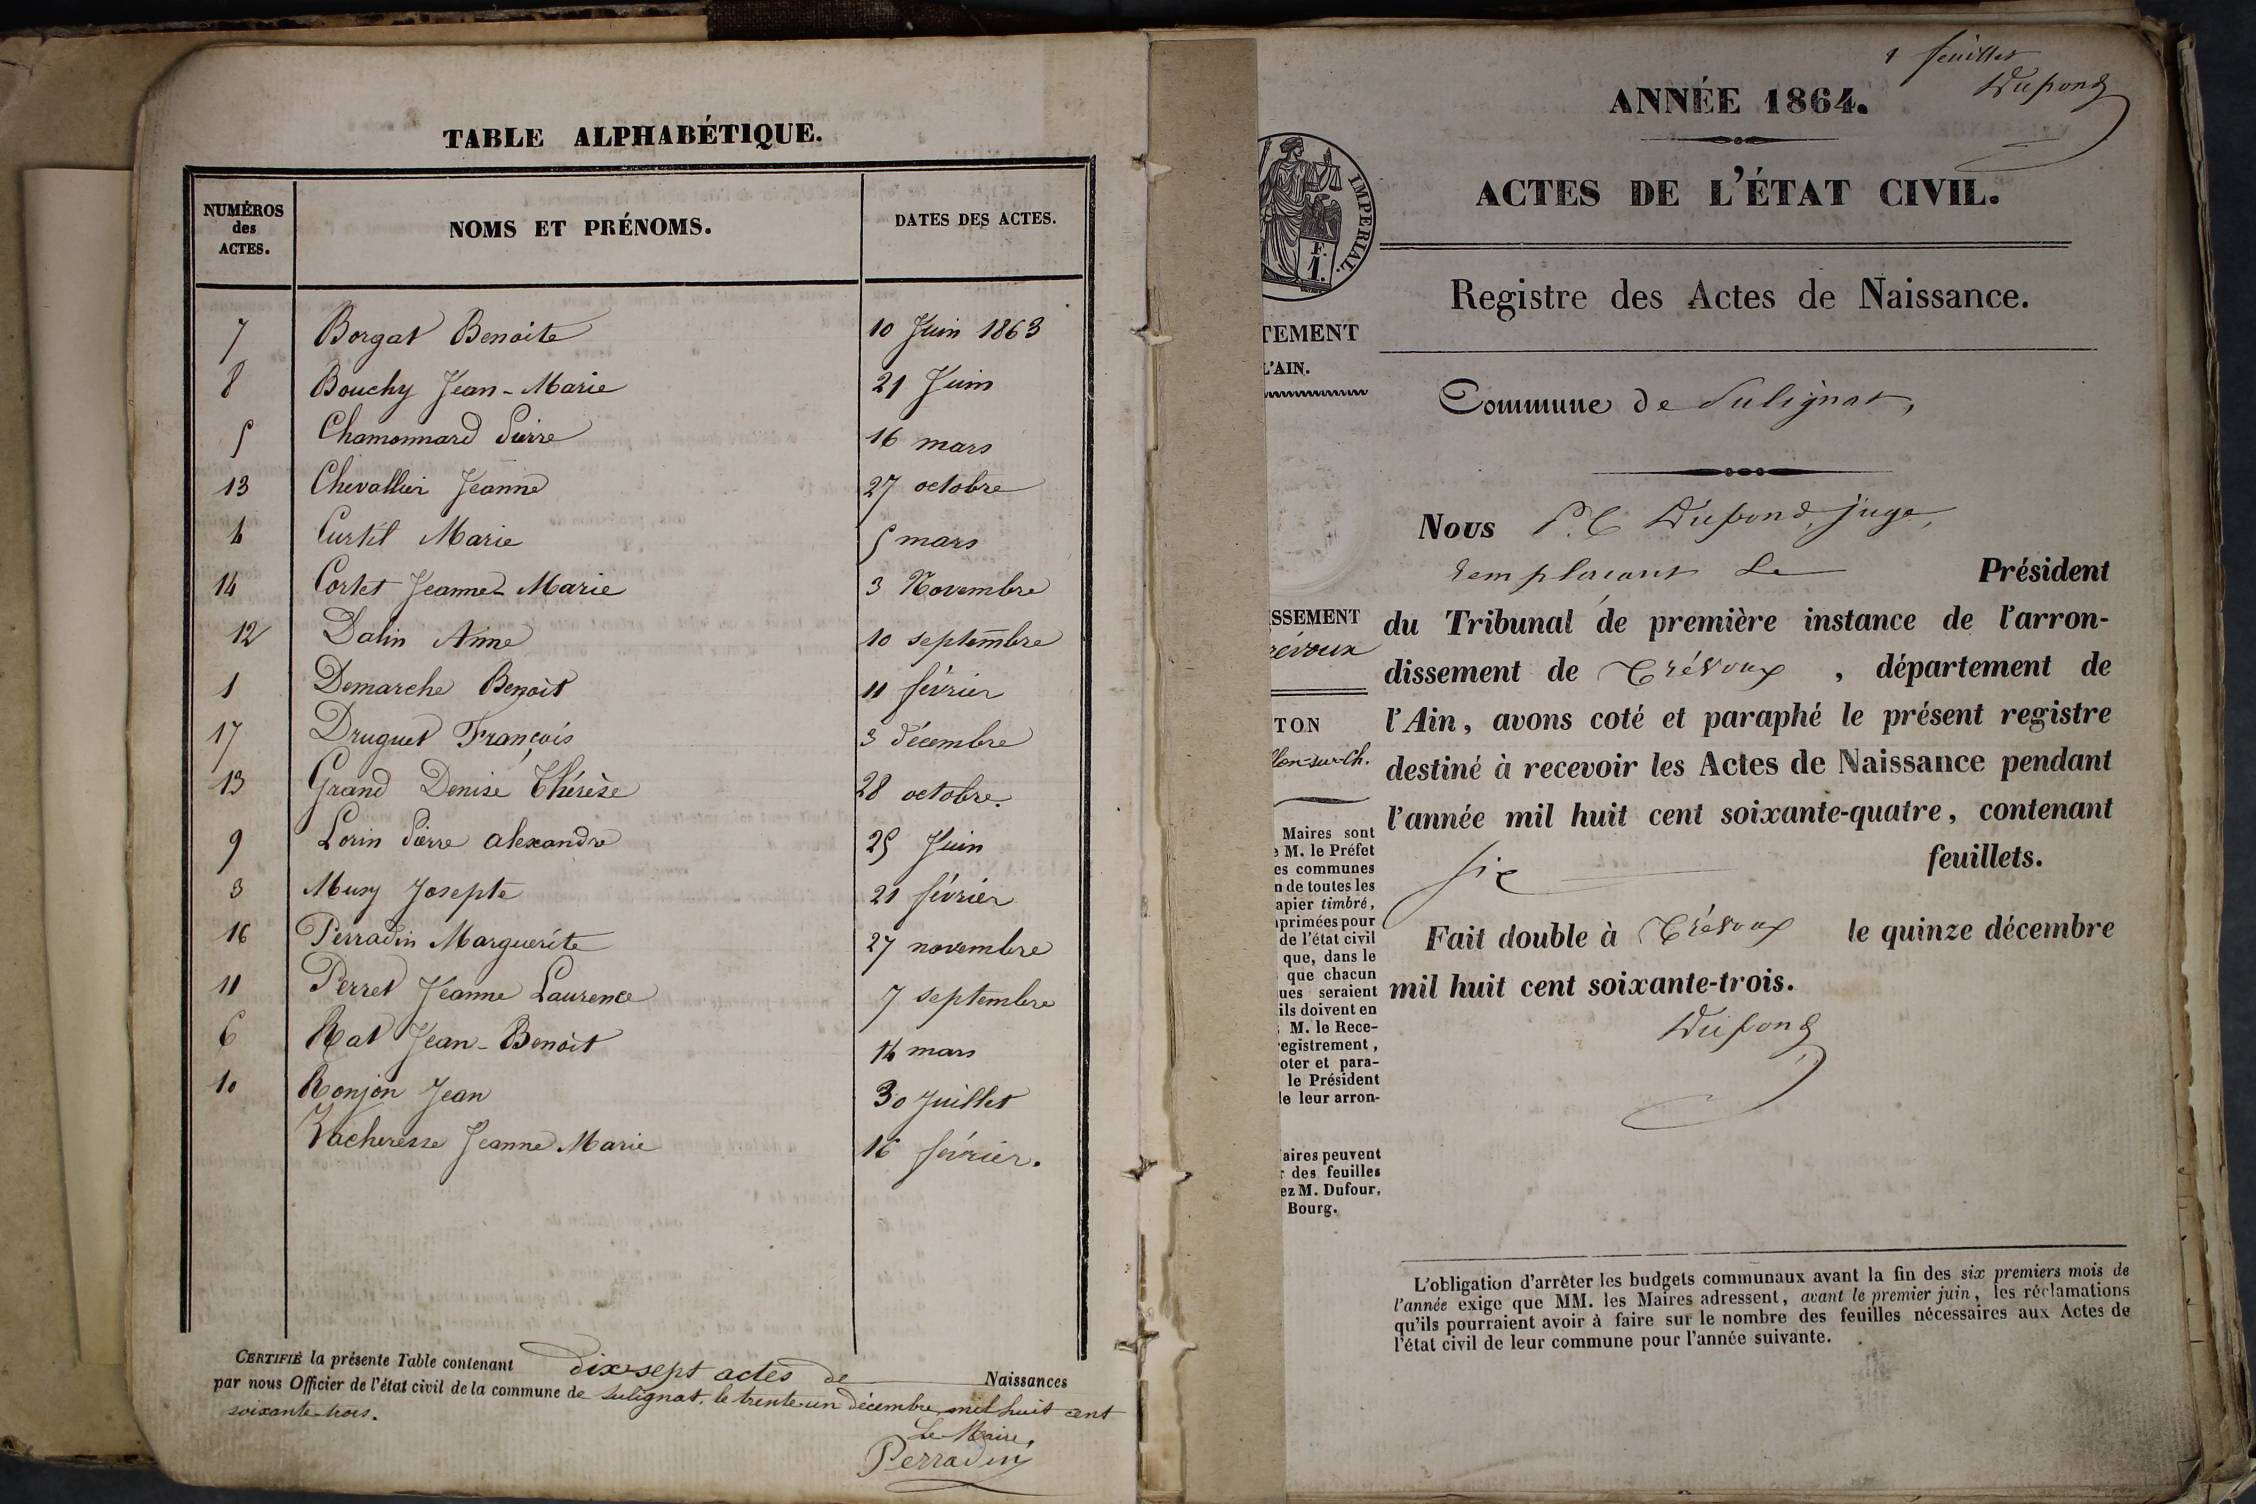 TABLE ALPHABÉTIQUE.
NUMÉROS des ACTES. NOMS ET PRÉNOMS. DATES DES ACTES.
7 Borgat Benoite 10 Juin 1863
8 Bouchy Jean-Marie 21 Juin
5 Chamonnard Pierre 16 mars
13 Chevallier Jeanne 27 octobre
4 Curtil Marie 5 mars
14 Cortet Jeanne Marie 3 Novembre
12 Dalin Anne 10 septembre
1 Demarche Benoit 11 février
17 Druguet François 3 décembre
13 Grand Denise Thérèse 28 octobre.
9 Lorin Pierre alexandre 25 Juin
3 Mury Josepte 21 février
16 Perradin Marguerite 27 novembre
11 Perret Jeanne Laurence 7 septembre
6 Rat Jean-Benoit 14 mars
10 Ronjon Jean 30 Juillet
Vacheresse Jeanne Marie 16 février.
CERTIFIÉ la présente Table contenant dix-sept actes de Naissances
par nous Officier de l'état civil de la commune de Sulignat, le trente un décembre mil huit cent
soixante-trois.
Le Maire,
Perradin
1 feuillet
Dupond
ANNÉE 1864.
ACTES DE L'ÉTAT CIVIL.
IMPERIAL.
F.
1.
Registre des Actes de Naissance.
TEMENT
L'AIN.
Commune de Sulignat,
Nous P. C Dupond, juge,
remplacant Le Président
ISSEMENT
révoux
du Tribunal de première instance de l'arron-
dissement de Trévoux, département de
l'Ain, avons coté et paraphé le présent registre
destiné à recevoir les Actes de Naissance pendant
l'année mil huit cent soixante-quatre, contenant
six feuillets.
Fait double à Trévoux le quinze décembre
mil huit cent soixante-trois.
Dupond
TON
llon-sur-Ch.
Maires sont
e M. le Préfet
es communes
n de toutes les
apier timbré,
primées pour
de l'état civil
que, dans le
que chacun
ues seraient
ils doivent en
M. le Rece-
egistrement,
oter et para-
le Président
de leur arron-
aires peuvent
r des feuilles
ez M. Dufour,
Bourg.
L'obligation d'arrêter les budgets communaux avant la fin des six premiers mois de
l'année exige que MM. les Maires adressent, avant le premier juin, les réclamations
qu'ils pourraient avoir à faire sur le nombre des feuilles nécessaires aux Actes de
l'état civil de leur commune pour l'année suivante.